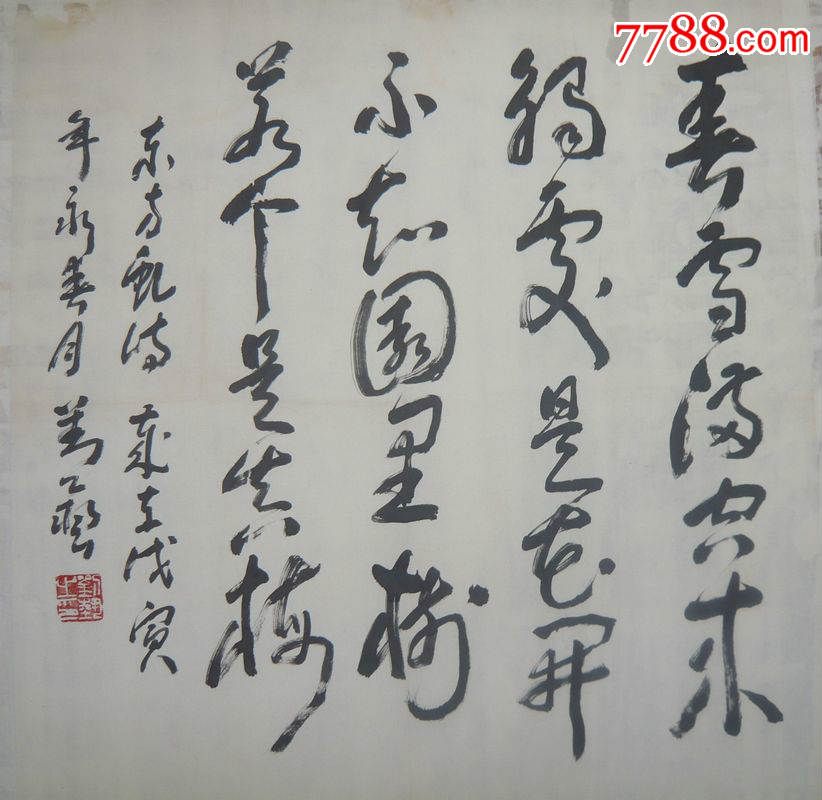 7788.com
春雪满空来
触处是花开
不知园里树
若个是真梅
东方虬诗 岁在戊寅
年新春月 刘艺